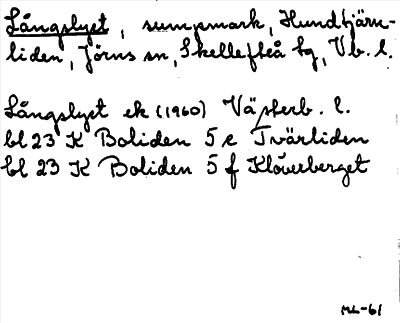 Långslyet, sumpmark, Hundtjärn-
liden, Jörns sn, Skellefteå kg, Vb. l.
Långslyet ek (1960) Västerb. l.
bl 23 K Boliden 5 e Tvärliden
bl 23 K Boliden 5 f Klöverberget
ML-61